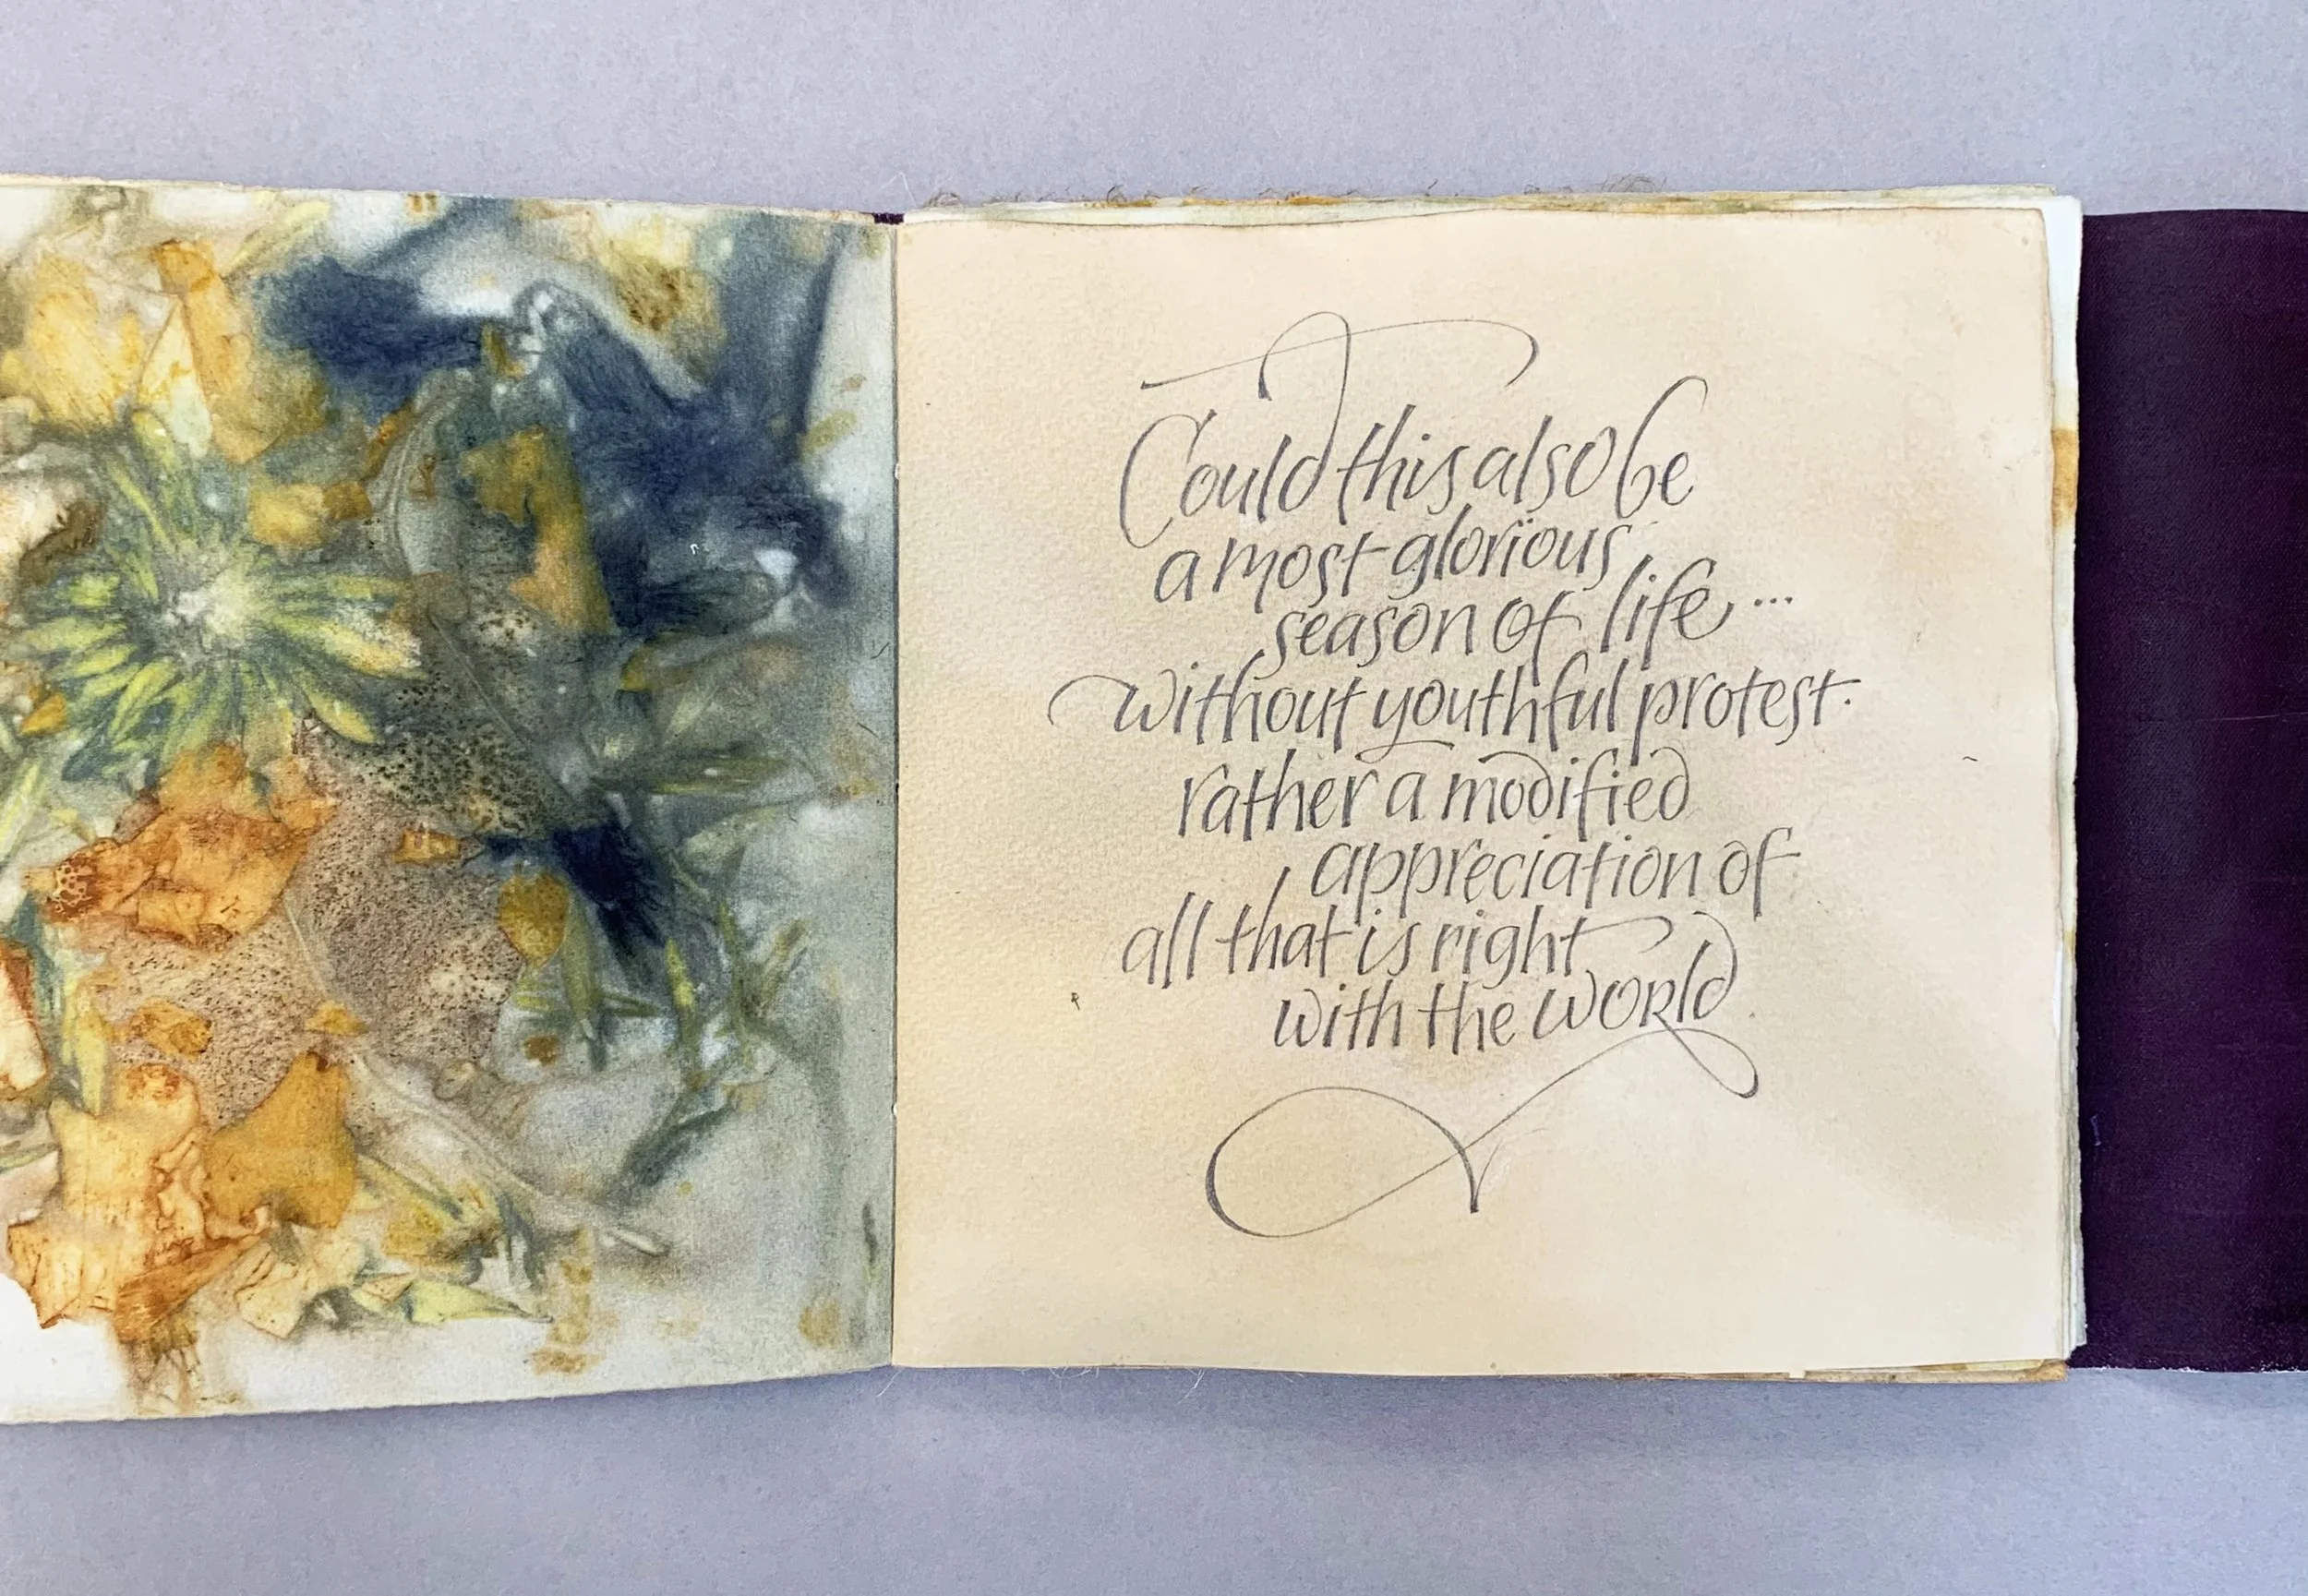 Could this also be
a most glorious
season of life...
without youthful protest.
rather a modified
appreciation of
all that is right
with the world